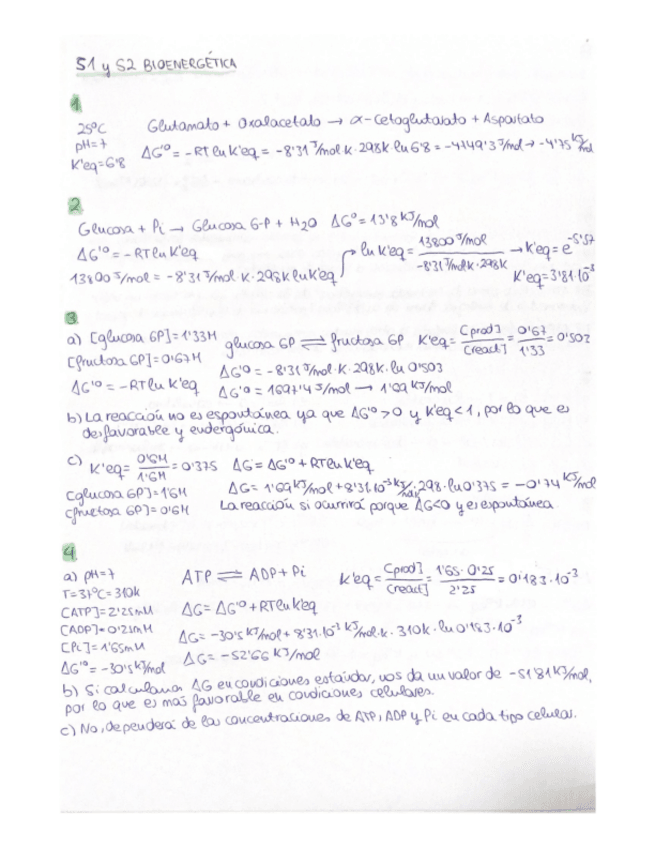 S1 y S2 BIOENERGÉTICA
1
25ºC
pH=7
K'eq=6'8
Glutamato + Oxalacetato → α-Cetoglutarato + Aspartato
ΔG'º = -RT ln K'eq = -8'31 J/mol K · 298K ln 6'8 = -4749'3 J/mol → -4'75 KJ/mol
2
Glucosa + Pi → Glucosa 6-P + H2O ΔG'º = 13'8 KJ/mol
ΔG'º = -RT ln K'eq
13800 J/mol = -8'31 J/mol K · 298K ln K'eq
ln K'eq = 13800 J/mol / -8'31 J/molK · 298K → K'eq = e^-5'57
K'eq = 3'81·10^-3
3
a) [glucosa 6P] = 1'33M
[fructosa 6P] = 0'67M
ΔG'º = -RT ln K'eq
glucosa 6P ⇌ fructosa 6P K'eq = [prod] / [react] = 0'67 / 1'33 = 0'502
ΔG'º = -8'31 J/mol·K · 298K · ln 0'503
ΔG'º = 1697'4 J/mol → 1'69 KJ/mol
b) La reacción no es espontánea ya que ΔG'º > 0 y K'eq < 1, por lo que es
desfavorable y endergónica.
c) K'eq = 0'6M / 1'6M = 0'375 ΔG = ΔG'º + RT ln K'eq
[glucosa 6P] = 1'6M
[fructosa 6P] = 0'6M
ΔG = 1'69 KJ/mol + 8'31·10^-3 KJ/molK · 298 · ln 0'375 = -0'74 KJ/mol
La reacción si ocurrirá porque ΔG<0 y es espontánea
4
a) pH=7
T=37ºC=310K
[ATP]=2'25mM
[ADP]=0'25mM
[Pi]=1'65mM
ΔG'º = -30'5 KJ/mol
ATP ⇌ ADP + Pi K'eq = [prod] / [react] = 1'65·0'25 / 2'25 = 0'183·10^-3
ΔG = ΔG'º + RT ln K'eq
ΔG = -30'5 KJ/mol + 8'31·10^-3 KJ/mol·K · 310K · ln 0'183·10^-3
ΔG = -52'66 KJ/mol
b) Si calculamos ΔG en condiciones estándar, nos da un valor de -51'81 KJ/mol,
por lo que es más favorable en condiciones celulares.
c) No, dependerá de las concentraciones de ATP, ADP y Pi en cada tipo celular.